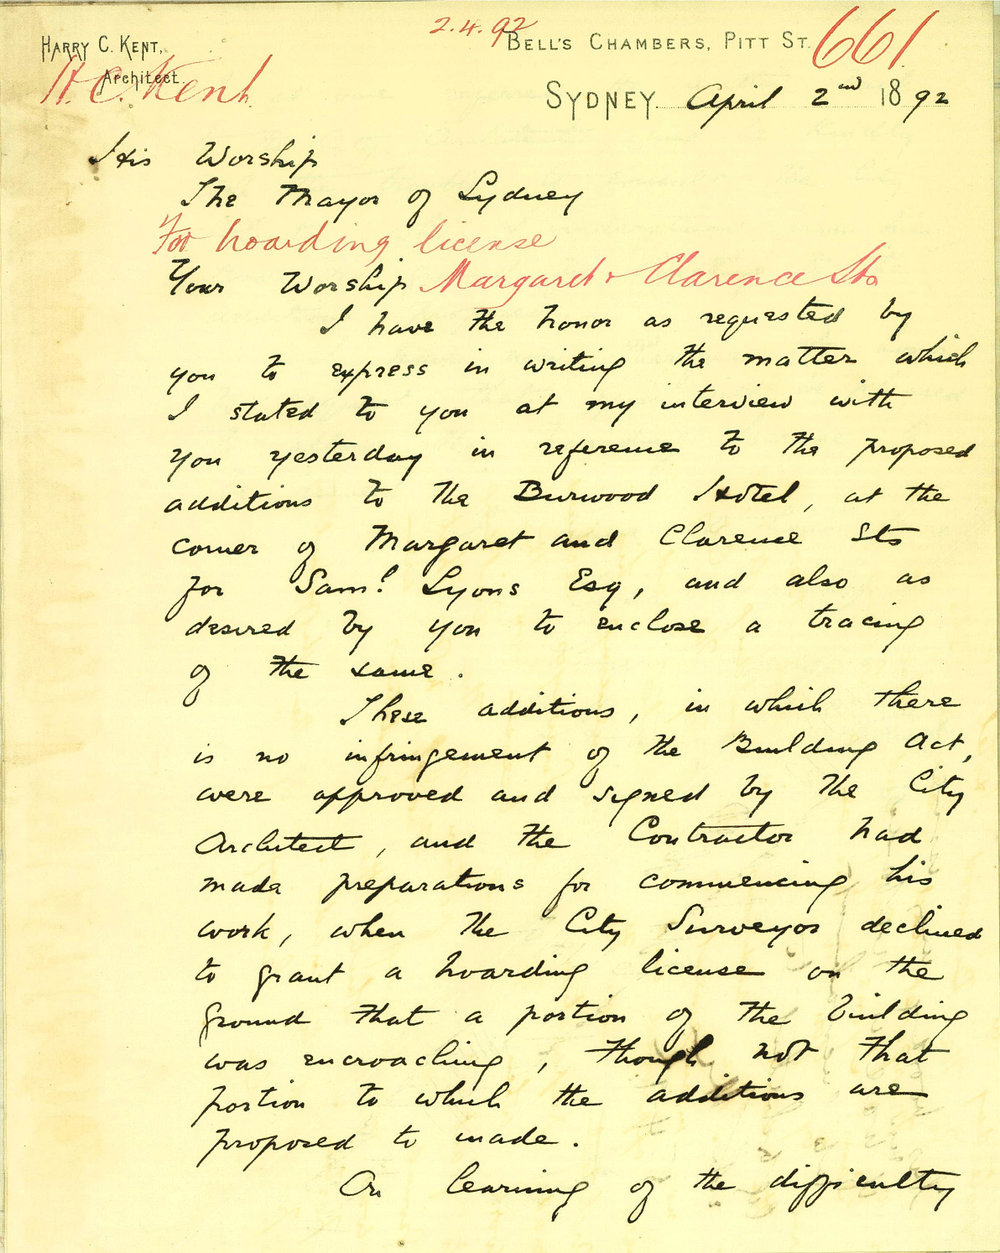 2.4.92
HARRY C. KENT,
Architect.
H. C. Kent.
BELL'S CHAMBERS, PITT ST.
661.
SYDNEY April 2nd 1892
His Worship
The Mayor of Sydney
For hoarding license
Your Worship
Margaret & Clarence Sts
I have the honor as requested by
you to express in writing the matter which
I stated to you at my interview with
you yesterday in reference to the proposed
additions to the Burwood Hotel, at the
corner of Margaret and Clarence Sts
for Saml. Lyons Esq, and also as
desired by you to enclose a tracing
of the same.
These additions, in which there
is no infringement of the Building Act,
were approved and signed by the City
Architect, and the Contractor had
made preparations for commencing his
work, when the City Surveyor declined
to grant a hoarding license on the
ground that a portion of the building
was encroaching, though not that
portion to which the additions are
proposed to made.
On learning of the difficulty